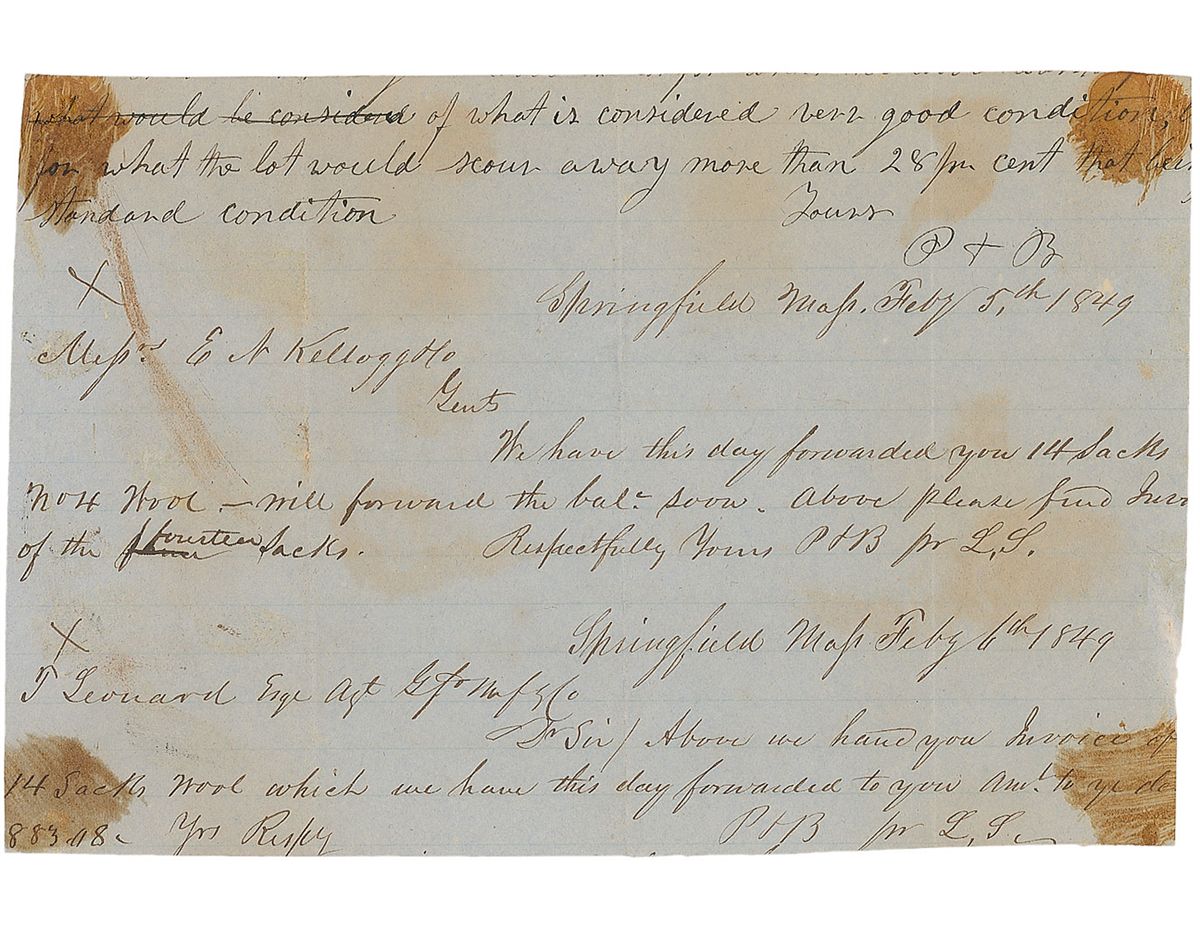 what would be considered of what is considered very good condition,
for what the lot would scour away more than 28 pr cent that bei
standard condition Yours
P & B
X
Springfield Mass. Feby 5th 1849
Messrs E N Kellogg & Co
Gents
We have this day forwarded you 14 Sacks
No 4 Wool – will forward the balc soon. Above please find Invo
of the fourteen Sacks. Respectfully Yours P & B pr L, S.
X
Springfield Mass Feby 6th 1849
T Leonard Esqe Agt Mnfg Co
Dr Sir / Above we hand you Invoice of
14 Sacks Wool which we have this day forwarded to you Amt. to
883.18 Yrs Respy P & B pr L, S.